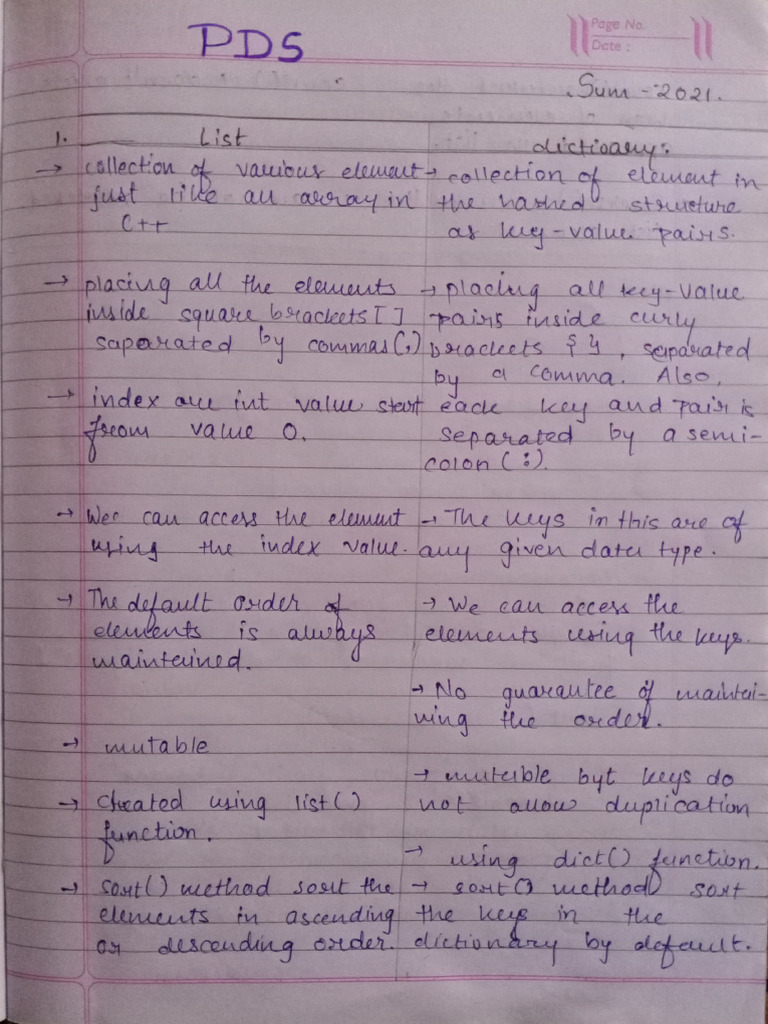 PDS
Page No.
Date :
Sum - 2021.
1. List
dictioary:
→ collection of various element
just like an array in
C++
→ collection of element in
the hashed structure
as key-value pairs.
→ placing all the elements
inside square brackets []
saparated by commas(,)
→ placing all key-value
pairs inside curly
brackets { }, separated
by a comma. Also,
each key and pair is
separated by a semi-
colon (:).
→ index are int value start
from value 0.
→ We can access the element
using the index value.
→ The keys in this are of
any given data type.
→ The default order of
elements is always
maintained.
→ We can access the
elements using the keys.
→ No guarantee of maintai-
ning the order.
→ mutable
→ mutable byt keys do
not allow duplication
→ Created using list()
function.
→ using dict() function.
→ sort() method sort the
elements in ascending
or descending order.
→ sort() method sort
the keys in the
dictionary by default.